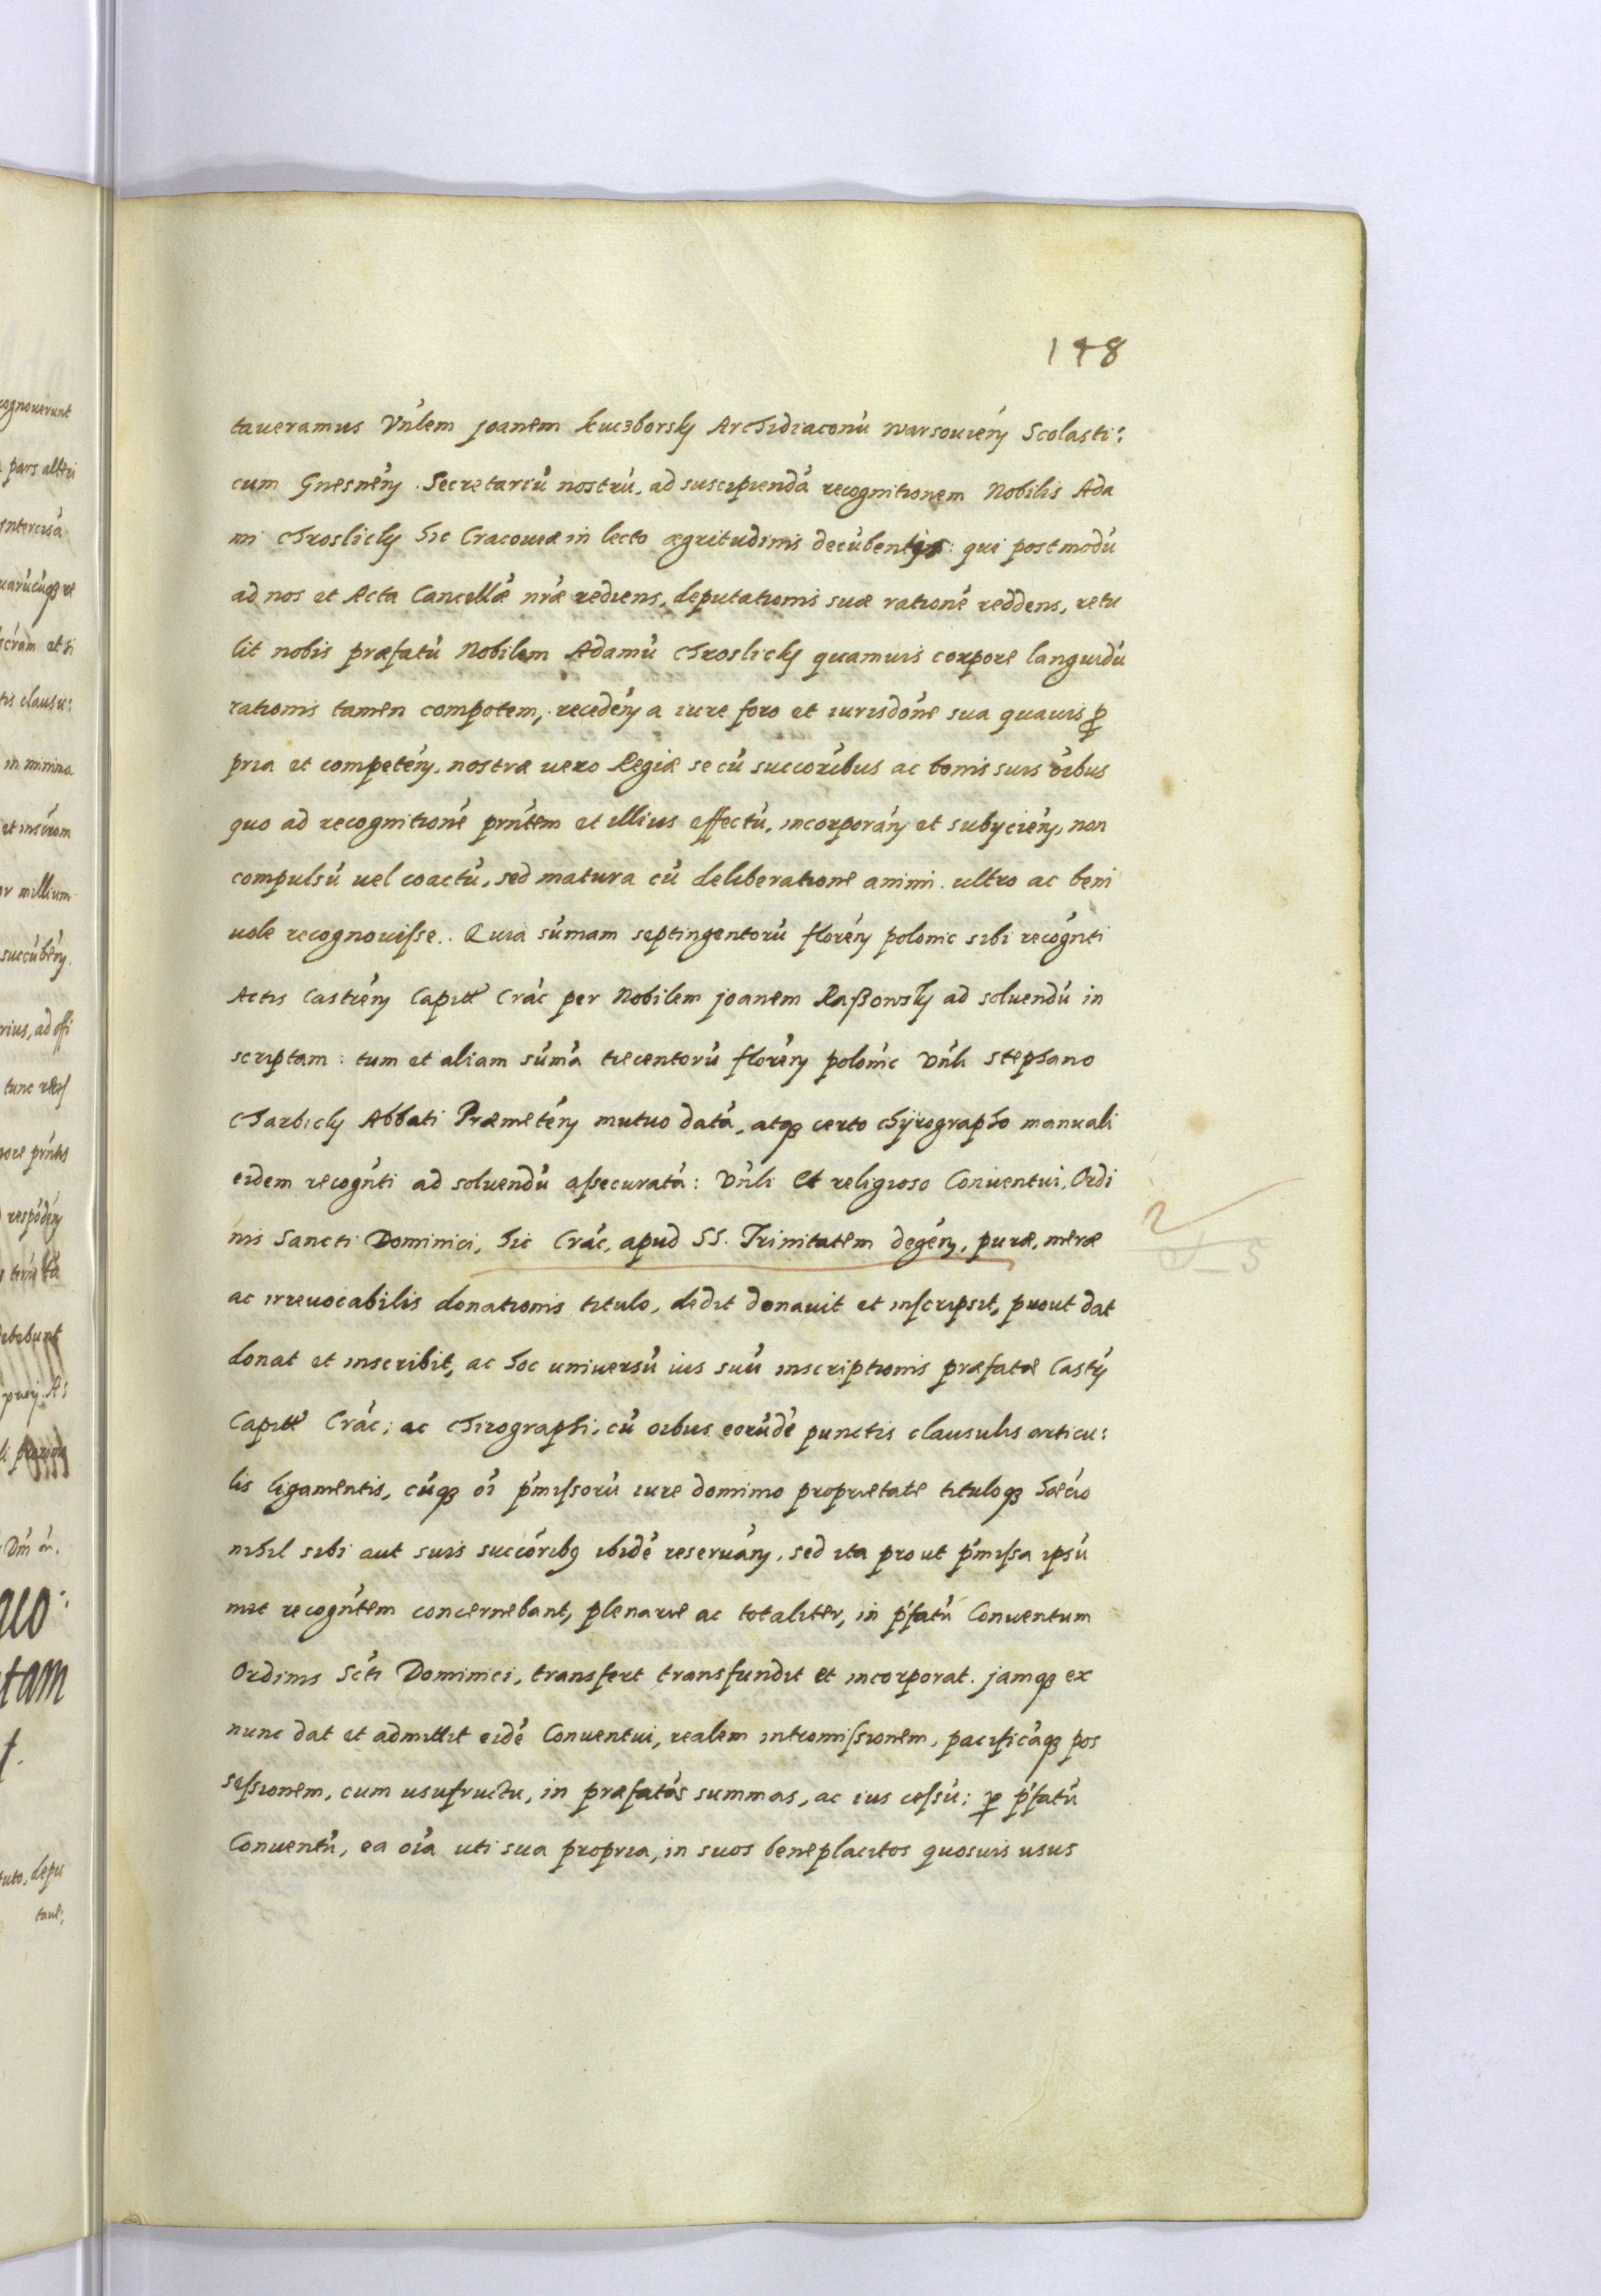 148
taueramus Vńlem Joanem Kuczborskÿ Archidiaconú warsouień Scolasti:
cum Gnesneń Secretariú nostrú, ad suscipiendá recognitionem Nobilis Ada
mi Chroslickÿ hic Cracouiæ in lecto ægritudinis decúbentis: qui postmodú
ad nos et Acta Cancellǽ nŕæ rediens, deputationis suæ rationé reddens, retu
lit nobis præfatú Nobilem Adamú Chroslickÿ quamuis corpore languidú
rationis tamen compotem, recedeń a iure foro et iurisdóne sua quauis ꝓ
pria et competeń, nostræ uero Regiæ se cú succoribus ac bonis suis óibus
quo ad recognitioné prńtem et illius effectú, incorporań et subÿcień, non
compulsú uel coactú, sed matura cú deliberatione animi. ultro ac beni
uole recognouisse. Quia súmam septingentorú floreń polonic sibi recogńti
Actis Castreń Capitl Crác per Nobilem Joanem Raßowskÿ ad soluendú in
scriptam: tum et aliam súmá trecentorú floreń polońic Vńli Stephano
Charbickÿ Abbati Præmeteń mutuo datá, atqꝫ certo chÿrographo manuali
eidem recogńti ad soluendú assecuratá: Vńli et religioso Conuentui, Ordi
nis Sancti Dominici, hic Crác, apud SS. Trinitatem degeń, puræ, meræ
ac irreuocabilis donationis titulo, dedit donauit et inscripsit, prout dat
donat et inscribit, ac hoc uniuersú ius suú inscriptionis præfatæ Castń
Capitl Crác; ac chirographi, cú oibus eorúdé punctis clausulis articu:
lis ligamentis, cúqꝫ oí ṕmissorú iure dominio proprietate tituloqꝫ hæćio
nihil sibi aut suis succóribꝯ ibidé reseruań, sed ita prout ṕmissa ipsú
met recogńtem concernebant, plenarie ac totaliter, in ṕfatú Conuentum
Ordinis Scti Dominici, transfert transfundit et incorporat. Jamqꝫ ex
nunc dat et admittit eidé Conuentui, realem intromissionem, pacificáqꝫ pos
sessionem, cum usufructu, in præfatás summas, ac ius cessú; ꝑ ṕfatú
Conuentú, ea oía uti sua propria, in suos beneplacitos quosuis usus